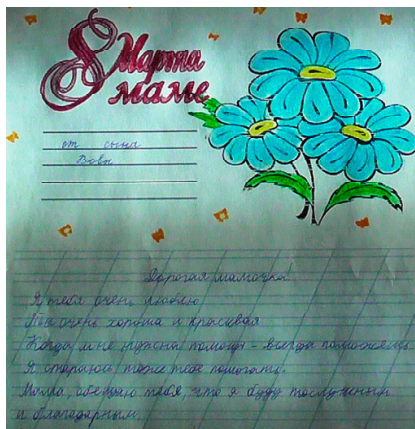 8 Марта
маме
от сына
Вовы
Дорогая мамочка!
Я тебя очень люблю.
Ты очень хороша и красивая.
Когда мне нужна помощь - всегда поможешь.
Я стараюсь тоже тебе помогать.
Мама, обещаю тебе, что я буду послушным
и благодарным.